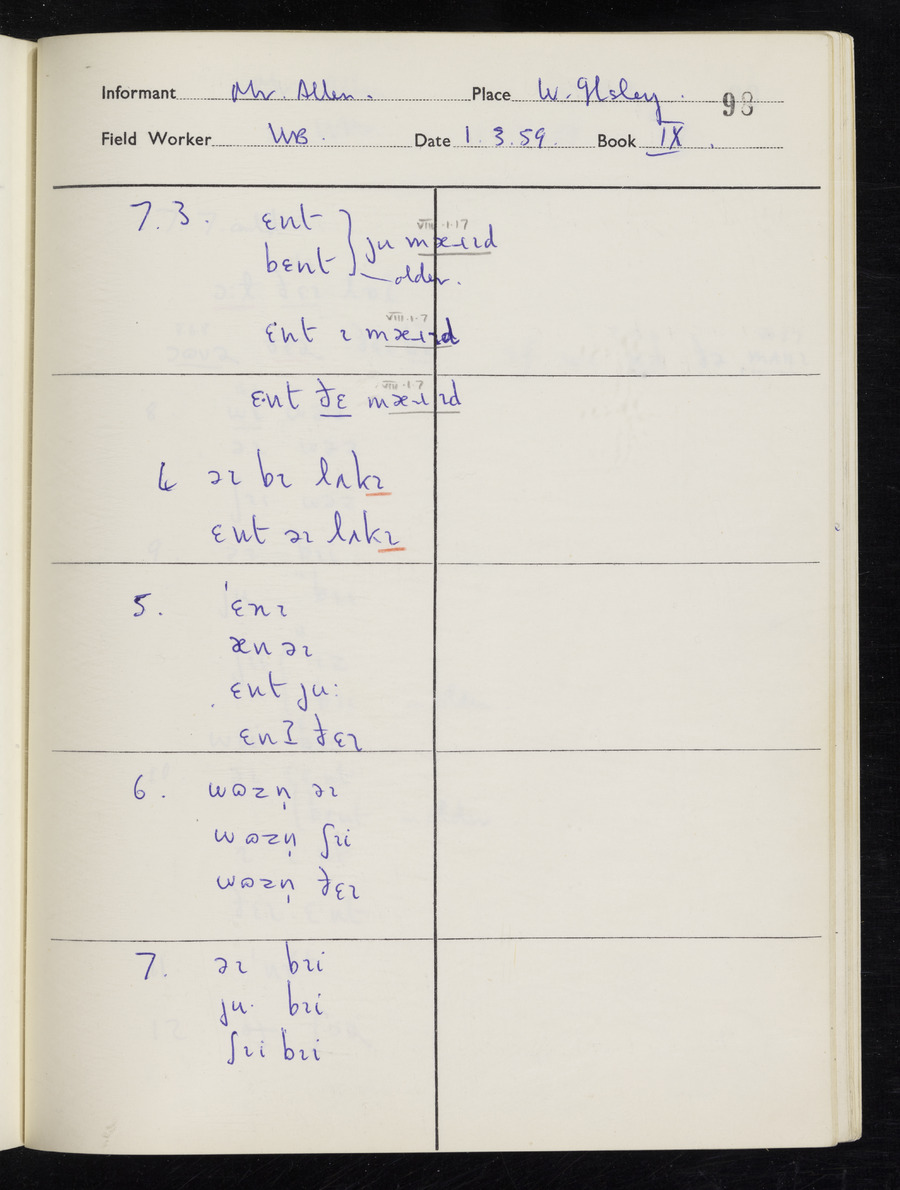 Informant Mr. Allen. Place W. Ilsley. 98
Field Worker WB. Date 1.3.59. Book IX.
7.3. ɛnt
bɛnt } ju mæɹɪd VIII.1.17
older.
ɛ·nt ɪ mæɹɪd VIII.1.7
ɛ·nt ðɛ mæɹɪd VIII.1.7
4 əɪ bɪ lʌkɪ
ɛnt əɪ lʌkɪ
5. ˈɛnɪ
æn əɪ
ɛnt ju:
ɛnʔ ðɛɪ
6. wɒzn̩ əɪ
wɒzn̩ ʃɪi
wɒzn̩ ðɛɪ
7. əɪ bɪi
ju· bɪi
ʃɪi bɪi